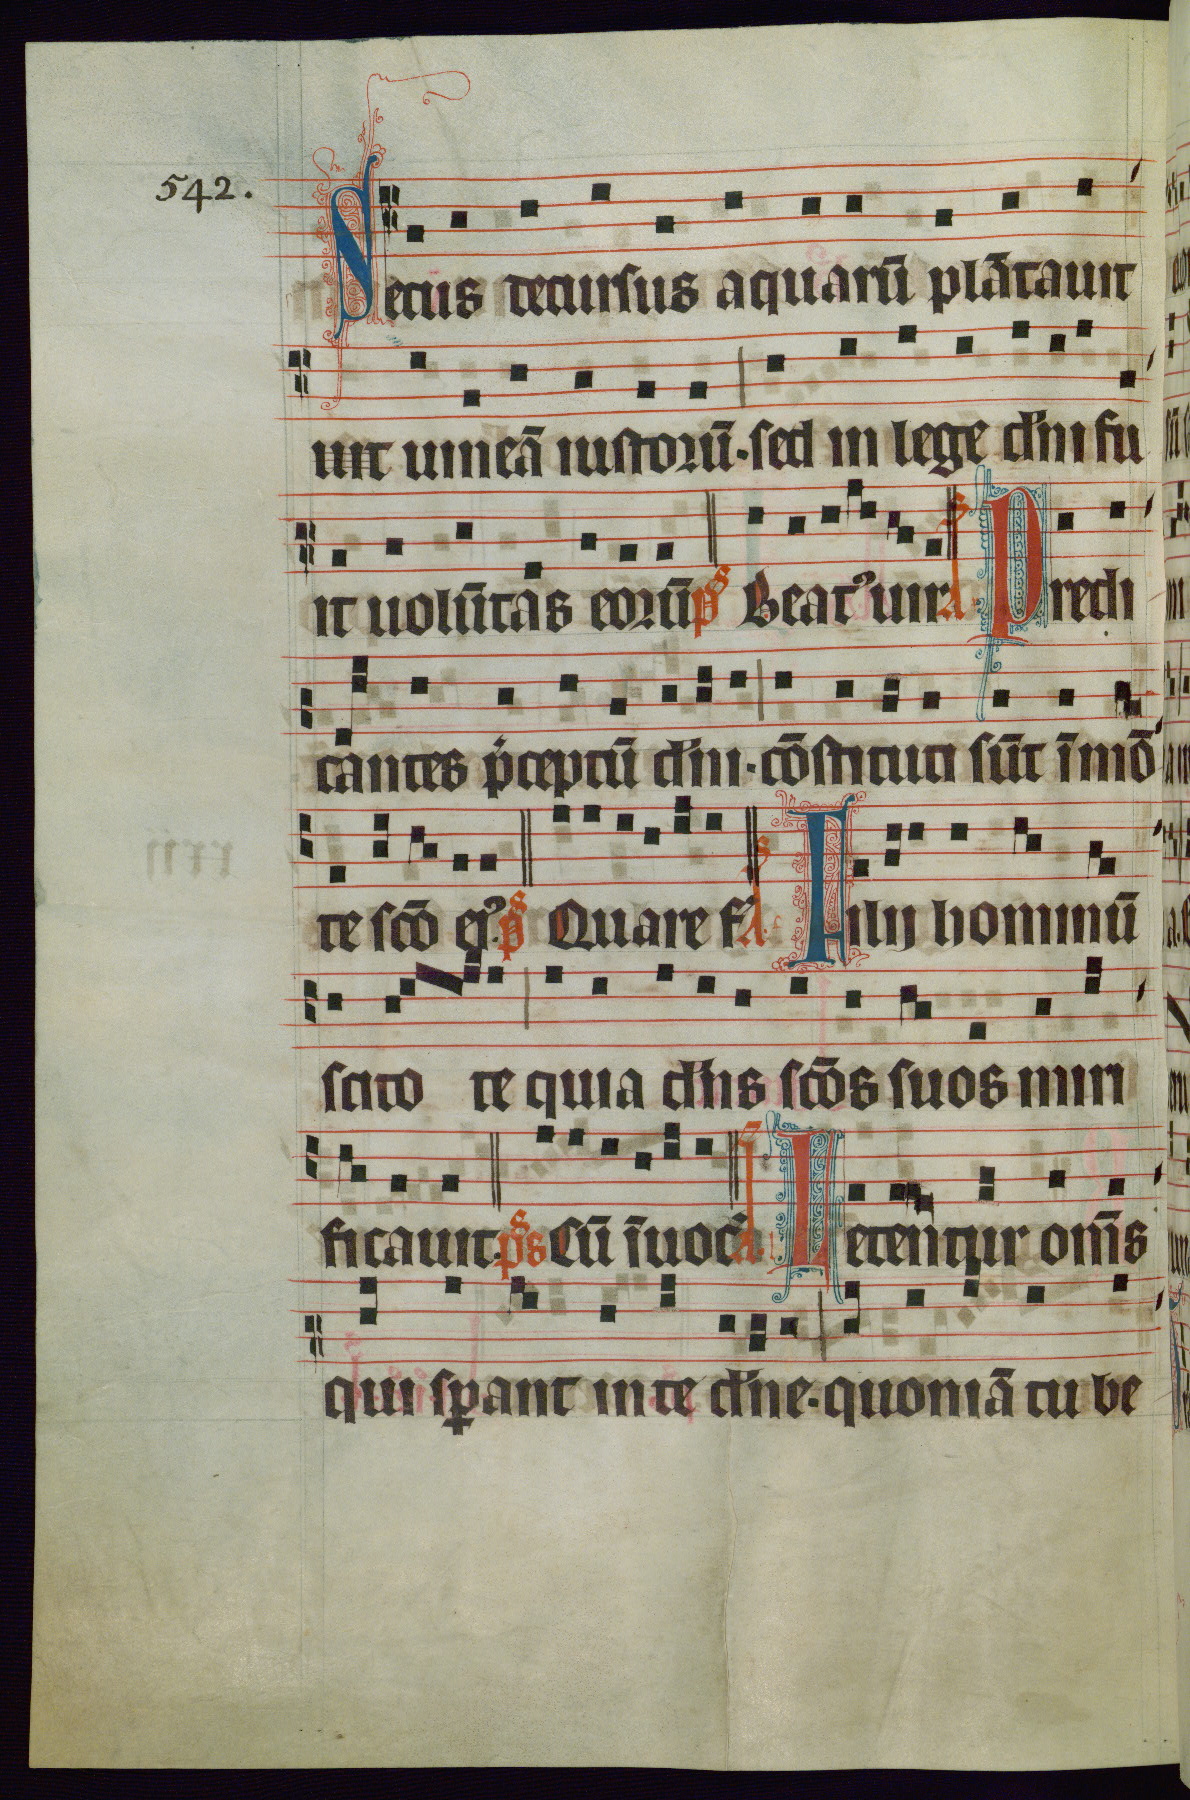 542.
Secus decursus aquarū plātauit
uit uineā iustorū. sed in lege dn̄i fu
it uolūtas eorū p̄s Beatꝰ uir A Predi
cantes p̄ceptū dn̄i. cōstituti sūt ī mō
te scō eiꝰ. p̄s Quare fr̄ A Filij hominū
scito te quia dn̄s scōs suos miri
ficauit. p̄s Cū īuocā A. Letentur om̄s
qui sꝑant in te dn̄e. quoniā tu be